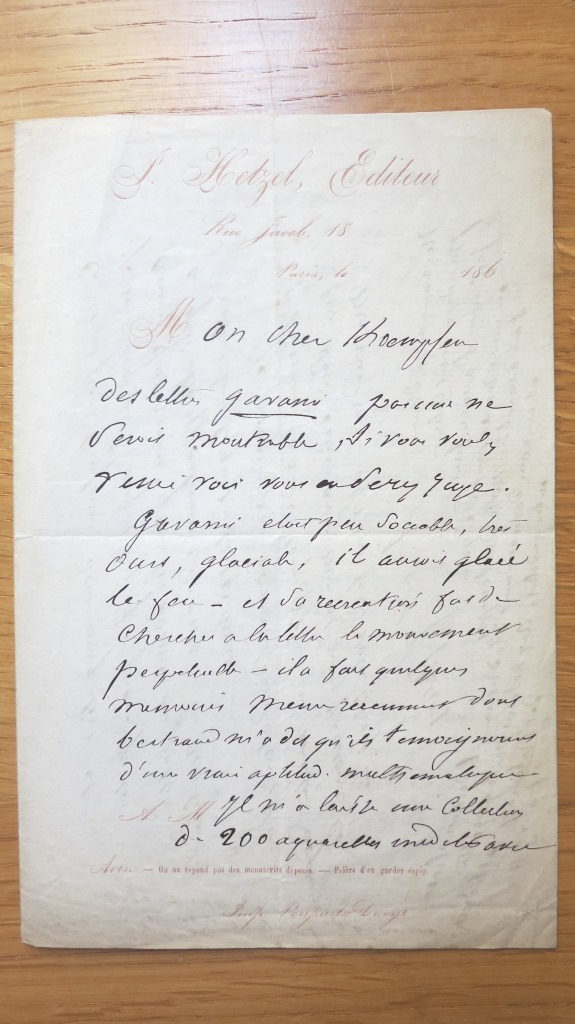 J. Hetzel, Editeur
Rue Jacob, 18
Paris, le 186
Mon cher Kaempfen
des lettres Gavarni pas une ne
serait montrable, si vous voulez
venir voir vous en serez juge.
Gavarni etait peu sociable, très
ours, glacial, il aurait glacé
le feu — et sa recreation fut de
chercher a la lettre le mouvement
perpetuel — il a fait quelques
memoires même recemment dont
bertrand m'a dit qu'ils temoignaient
d'une vraie aptitud. mathematique
A. M Il m'a laissé une collection
de 200 aquarelles
Avis. — On ne répond pas des manuscrits déposés. — Prière d'en garder copie.
Imp.